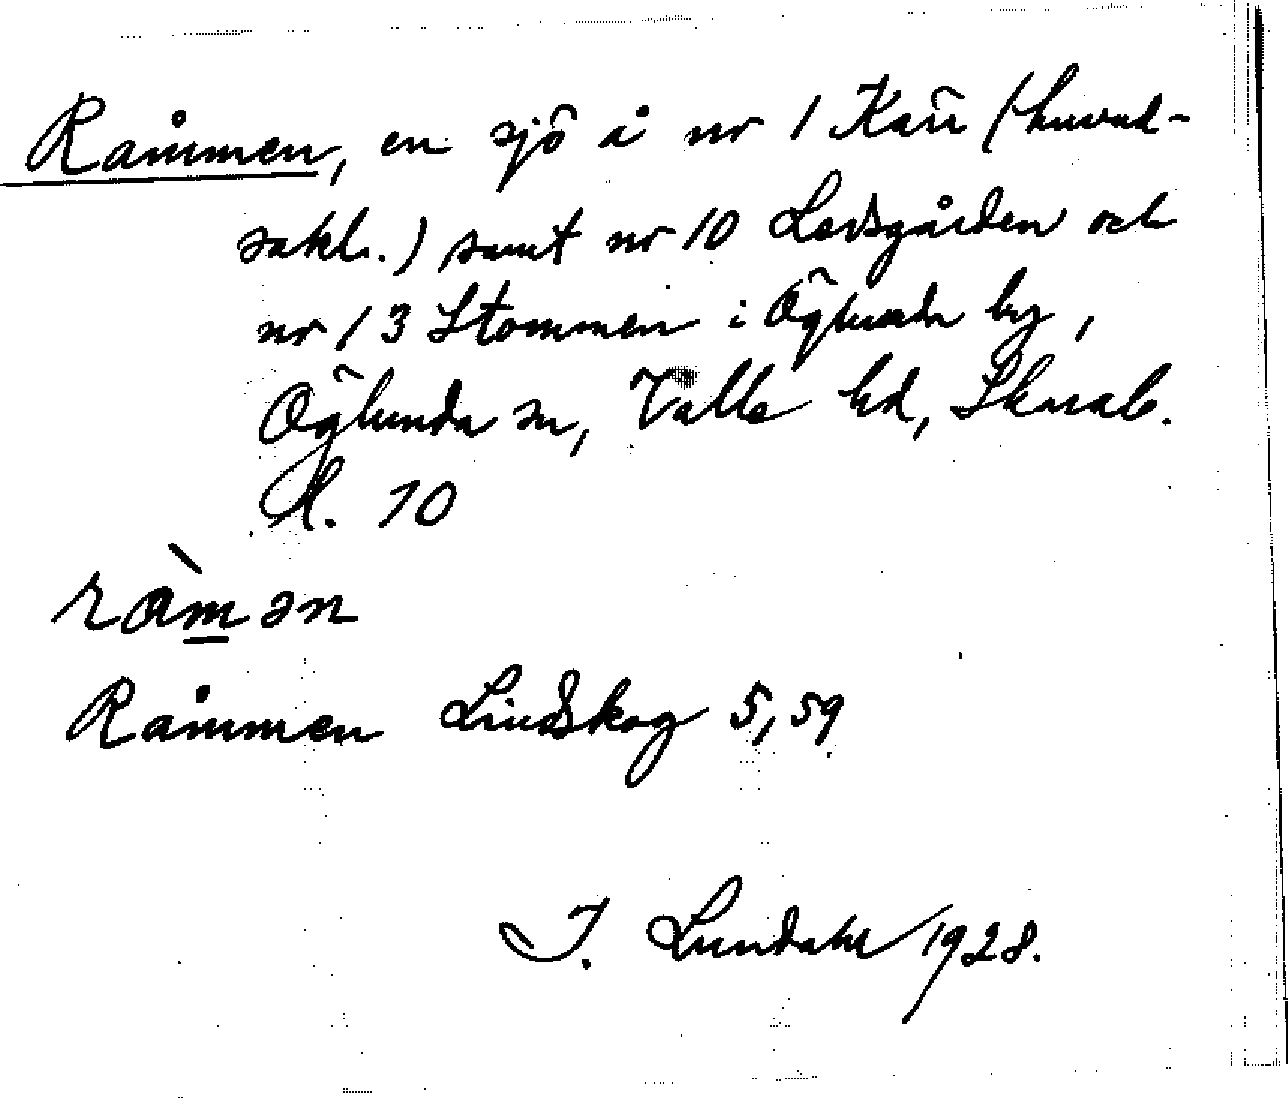 Råmmen, en sjö å nr 1 Kärr (huvud-
sakl.) samt nr 10 Ledsgården och
nr 13 Stommen i Öglunda by,
Öglunda sn, Valle hd, Skarab.
l. 10
råmən
Råmmen Lindskog 5,59
I. Lundahl 1928.